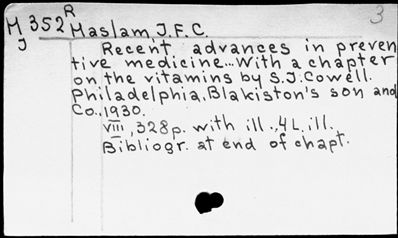 R
M 352 Maslam, J.F.C.
J
3
Recent advances in preven
tive medicine...With a chapter
on the vitamins by S.J.Cowell.
Philadelphia, Blakiston's son and
Co., 1930.
VIII, 328p. with ill., 4L. ill.
Bibliogr. at end of chapt.